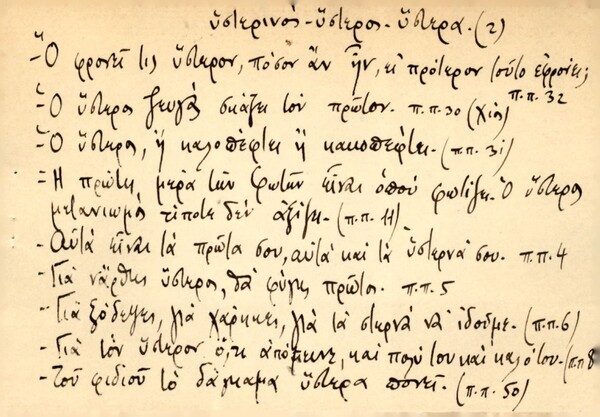 ὕστερινος - ὕστερος - ὕστερα. (2)
- Ὃ φρονεῖ τις ὕστερον, πόσον ἂν ἦν, εἰ πρότερον τοῦτο ἐφρόνει;
π.π. 32
- Ὁ ὕστερος ζευγᾶς σκάζει τὸν πρῶτον. π.π. 30 (Χίος)
- Ὁ ὕστερος, ἢ καλοπέφτει ἢ κακοπέφτει. (π.π. 31)
- Ἡ πρώτη μέρα τῶν Φωτῶν εἶναι ὁποὺ φωτίζει. Ὁ ὕστερος
μετανιωμὸς τίποτε δὲν ἀξίζει. (π.π. 11)
- Αὐτὰ εἶναι τὰ πρῶτα σου, αὐτὰ καὶ τὰ ὕστερνά σου. π.π. 4
- Γιὰ νἄρθῃς ὕστερος, θὰ φύγῃς πρῶτος. π.π. 5
- Γιὰ ξόδεψες, γιὰ χάρηκες, γιὰ τὰ στερνὰ νὰ ἰδοῦμε. (π.π. 6)
- Γιὰ τὸν ὕστερον ὅ,τι ἀπόμεινε, καὶ πολύ του καὶ καλό του. (π.π 8
- Τοῦ φιδιοῦ τὸ δάγκαμα ὕστερα πονεῖ. (π.π. 50)